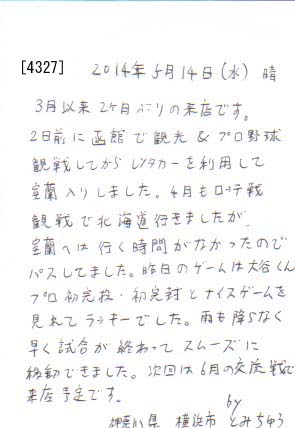 [4327] 2014年5月14日(水) 晴
3月以来2ヶ月ぶりの来店です。
2日前に函館で観光&プロ野球
観戦してからレンタカーを利用して
室蘭入りしました。4月もロッテ戦
観戦で北海道行きましたが、
室蘭へは行く時間がなかったので
パスしてました。昨日のゲームは大谷くん
プロ初完投・初完封とナイスゲームを
見れてラッキーでした。雨も降らなく
早く試合が終わってスムーズに
移動できました。次回は6月の交流戦で
来店予定です。
by
神奈川県 横浜市 とみちゅう